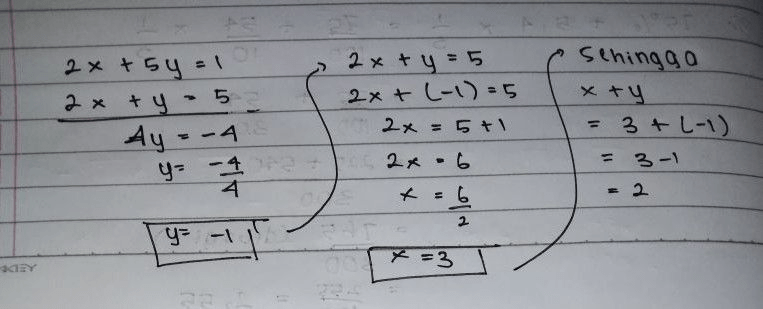 2x + 5y = 1
2x + y = 5 -
4y = -4
y = -4/4
y = -1
2x + y = 5
2x + (-1) = 5
2x = 5 + 1
2x = 6
x = 6/2
x = 3
Sehingga
x + y
= 3 + (-1)
= 3 - 1
= 2